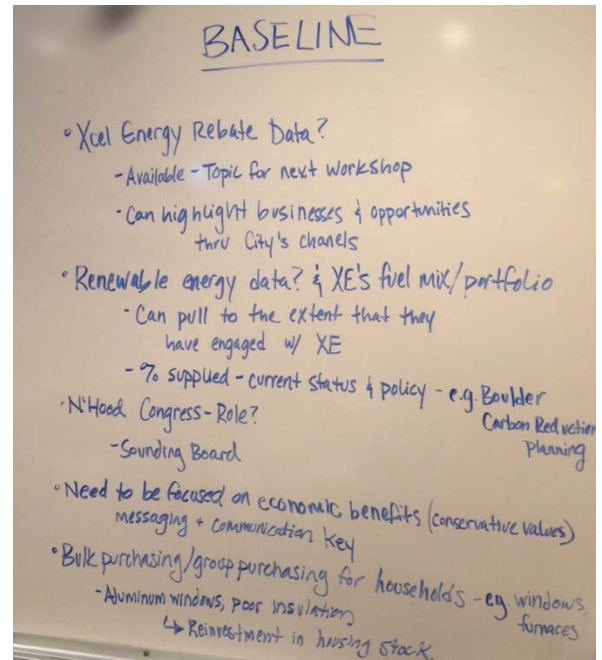 BASELINE
• Xcel Energy Rebate Data?
- Available - Topic for next workshop
- Can highlight businesses & opportunities
thru City's chanels
• Renewable energy data? & XE's fuel mix/portfolio
- Can pull to the extent that they
have engaged w/ XE
- % supplied - current status & policy - e.g. Boulder
Carbon Reduction
Planning
• N'Hood Congress - Role?
- Sounding Board
• Need to be focused on economic benefits (conservative values)
messaging + communication key
• Bulk purchasing/group purchasing for households - eg. windows,
furnaces
- Aluminum windows, poor insulation
↳ Reinvestment in housing stock